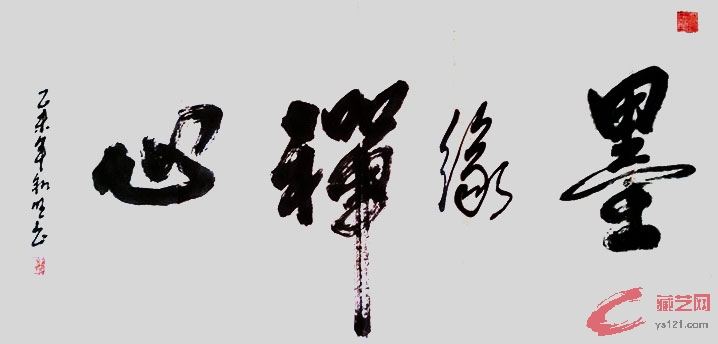 墨缘禅心
乙未年
藏艺网
ys121.com